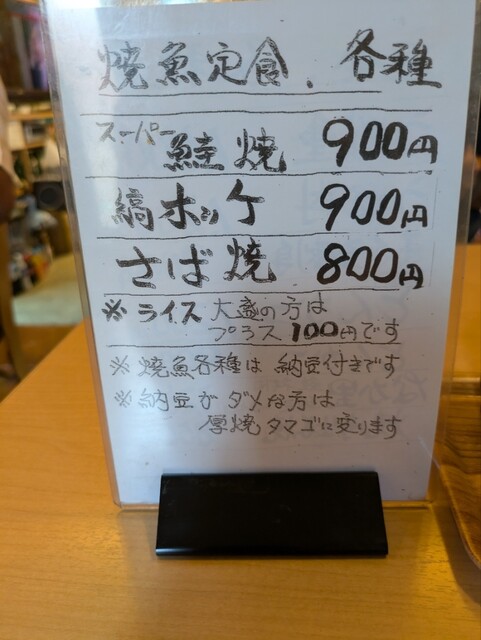 焼魚定食、各種
スーパー鮭焼 900円
縞ホッケ 900円
さば焼 800円
※ライス大盛の方は
プラス100円です
※焼魚各種は納豆付きです
※納豆がダメな方は
厚焼タマゴに変ります